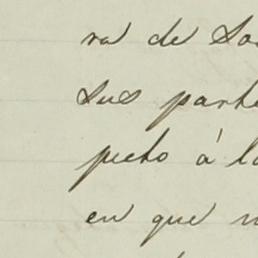 ra de So
sus parte
pecto á lo
en que n